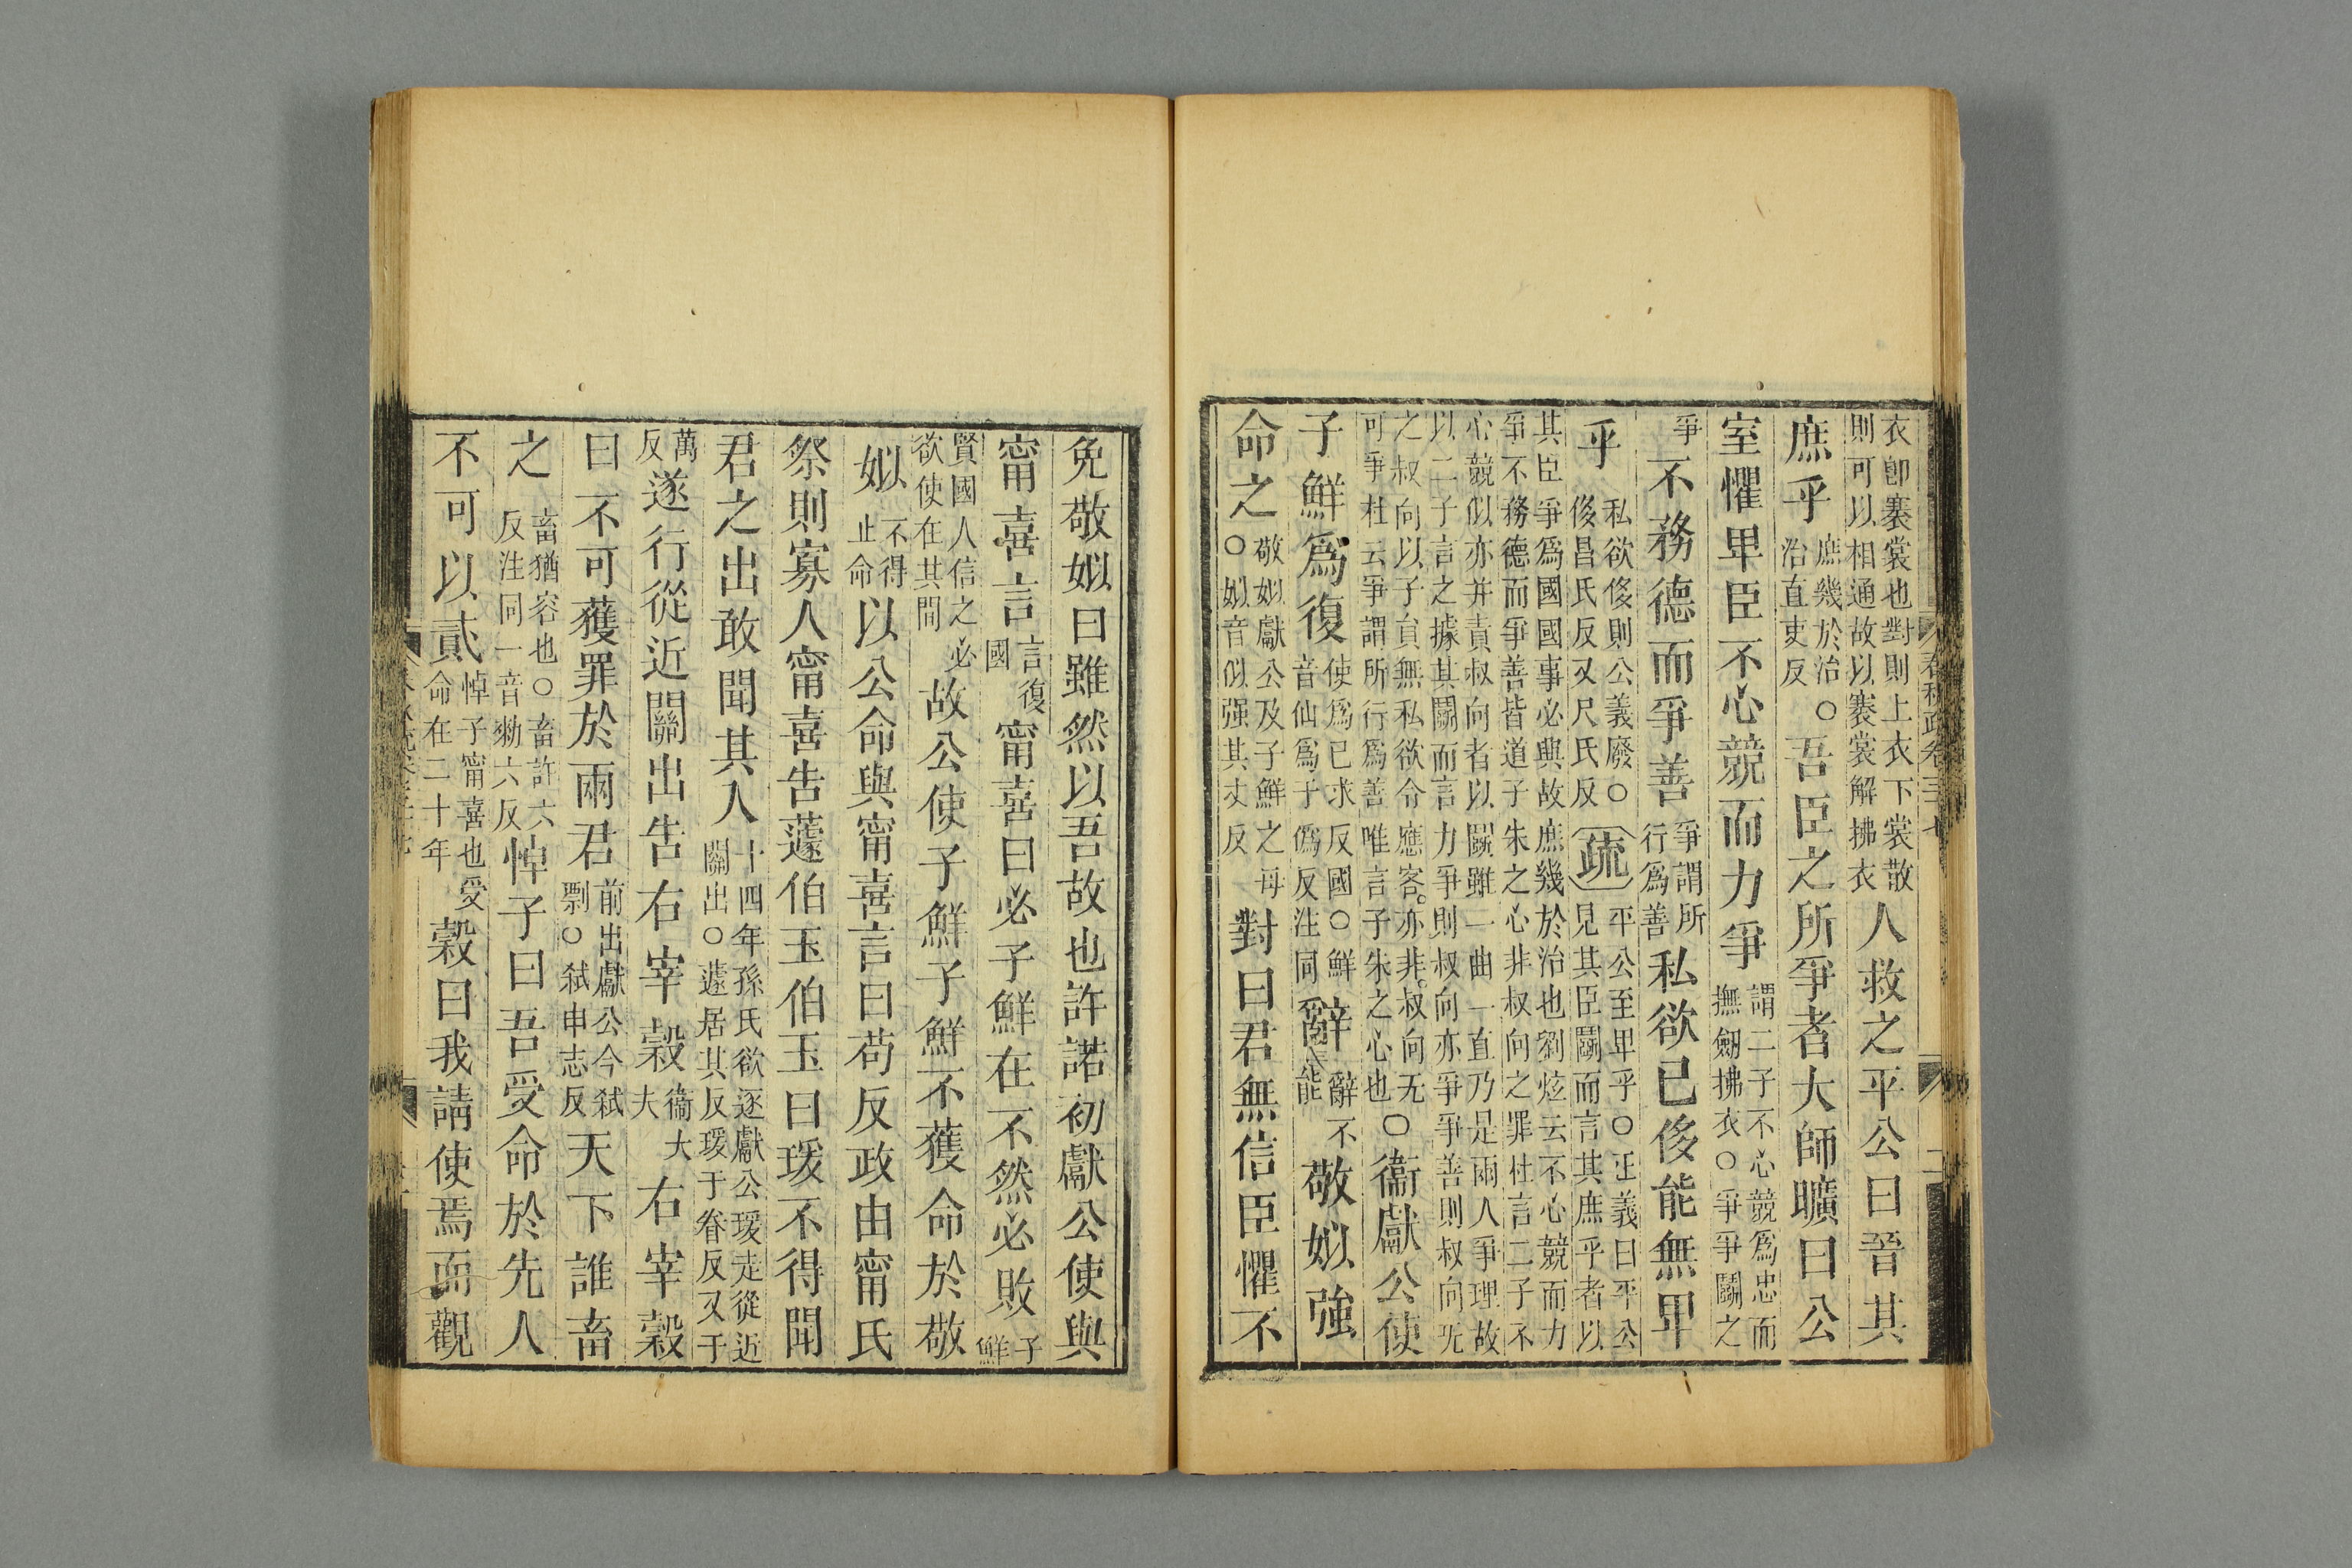 衣卽褰裳也對則上衣下裳散
則可以相通故以褰裳解拂衣
人救之平公曰晉其
庶乎
庶幾於治○
治直吏反
吾臣之所爭者大師曠曰公
室懼卑臣不心競而力爭
謂二子不心競爲忠而
撫劒拂衣○爭爭鬭之
爭
不務德而爭善
爭謂所
行爲善
私欲已侈能無卑
乎
私欲侈則公義廢○
侈昌氏反又尺氏反
疏
平公至卑乎○正義曰平公
見其臣鬭而言其庶乎者以
其臣爭爲國國事必興故庶幾於治也劉炫云不心競而力
爭不務德而爭善皆道子朱之心非叔向之罪杜言二子不
心競似亦幷責叔向者以鬭雖一曲一直乃是兩人爭理故
以二子言之據其鬭而言力爭則叔向亦爭爭善則叔向旡
之叔向以子員無私欲令應客亦非叔向无
可爭杜云爭謂所行爲善唯言子朱之心也
○衞獻公使
子鮮爲復
使爲已求反國○鮮
音仙爲于僞反注同
辭
辭不
能
敬姒強
命之
敬姒獻公及子鮮之母
○姒音似强其丈反
對曰君無信臣懼不
免敬姒曰雖然以吾故也許諾初獻公使與
甯喜言
言復
國
甯喜曰必子鮮在不然必敗
子
鮮
賢國人信之必
欲使在其間
故公使子鮮子鮮不獲命於敬
姒
不得
止命
以公命與甯喜言曰苟反政由甯氏
祭則寡人甯喜告蘧伯玉伯玉曰瑗不得聞
君之出敢聞其入
十四年孫氏欲逐獻公瑗走從近
關出○蘧居其反瑗于眷反又于
萬
反
遂行從近關出告右宰穀
衞大
夫
右宰穀
曰不可獲罪於兩君
前出獻公今弑
剽○弑申志反
天下誰畜
之
畜猶容也○畜許六
反注同一音勑六反
悼子曰吾受命於先人
不可以貳
悼子甯喜也受
命在二十年
穀曰我請使焉而觀